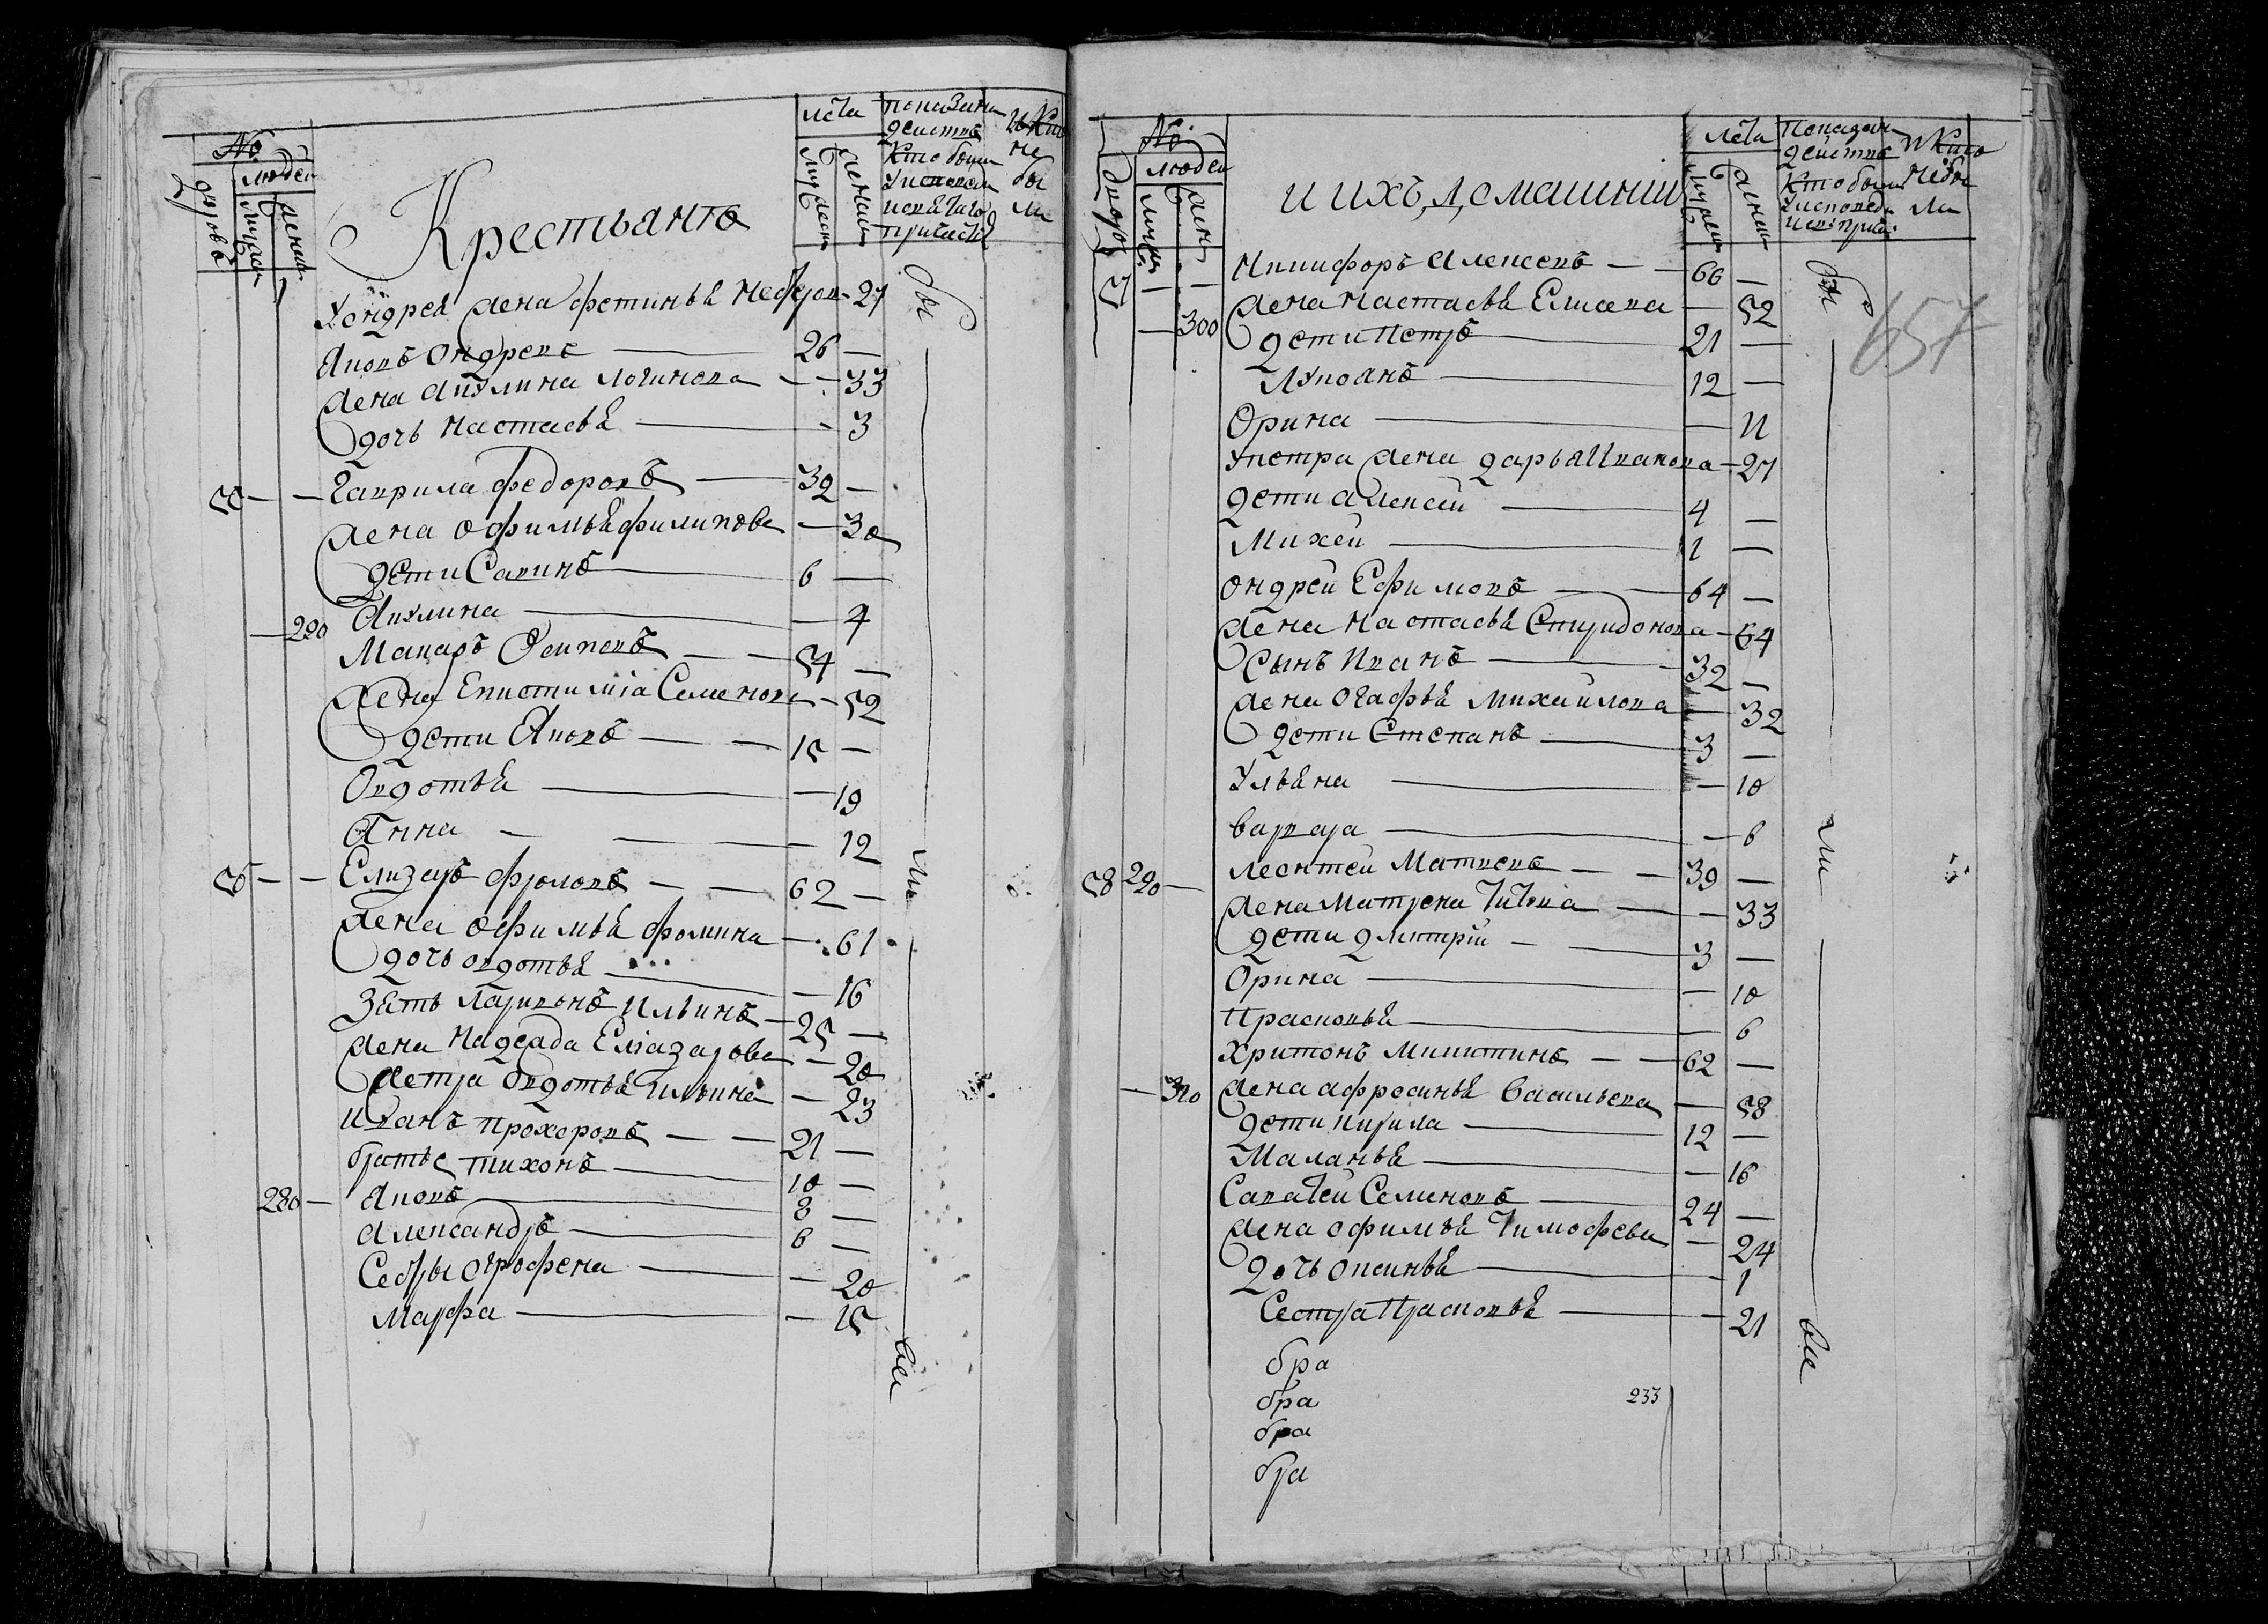 №
людей
дворовъ
мужес
женс
Крестьянъ
лета
мужеск
женск
показани действъ
Кто были
у исповеди
и святаго
причастия
и Кто
не
бы
ли
У ондрея жена фетинья нефедов 27
Яковъ ондревъ 26 —
жена акулина логинова — 33
дочь настасья — 3
5 — — Гаврила федоровъ 32 —
жена офимья филипова — 30
дети Савинъ 6 —
— 290 Акулина — 4
Макаръ Осиповъ 54 —
жена Епистимiа Семенова — 52
дети Яковъ 15 —
Овдотья — 19
Анна — 12
5 — — Елизаръ фроловъ 62 —
жена офимья фомина — 61
дочь овдотья — 16
Зять Ларионъ Ильинъ 25 —
жена Надежда Елiазарова — 20
сестра Овдотья ильина — 23
иванъ прохоровъ 21 —
братье тихонъ 10 —
280 — Яковъ 8 —
Александръ 6 —
Сестры огрофена — 20
Марфа — 15
бы
ли
все
№
людей
дворо
мужс
жен
и ихъ домашнии
лета
мужеск
женск
показан
действ
Кто были
у исповеди
и св: прича:
и Кто
небы
ли
657
5 — — Никифоръ Алексевъ 60 —
жена настасья Елисева — 52
— 300 дети Петръ 21 —
Лукоянъ 12 —
Орина — 11
У петра жена дарья Иванова — 27
дети алексей 4 —
Михей 1 —
Ондрей Ефимовъ 64 —
жена настасья Спиридонова — 64
Сынъ Иванъ 32 —
жена огафья михайлова — 32
дети Степанъ 3 —
Ульяна — 10
варвара — 6
58 290 — Леонтей Матвевъ 39 —
жена матрена титова — 33
дети дмитрiй 3 —
Орина — 10
Прасковья — 6
Хритонъ микитинъ 62 —
— 310 жена афросинья васильева — 58
дети кирила 12 —
Маланья — 16
Саватей Семеновъ 24 —
жена офимья тимофева — 24
дочь оксинья — 1
Сестра Прасковья — 21
бра
бра
233
бра
бра
бы
ли
все